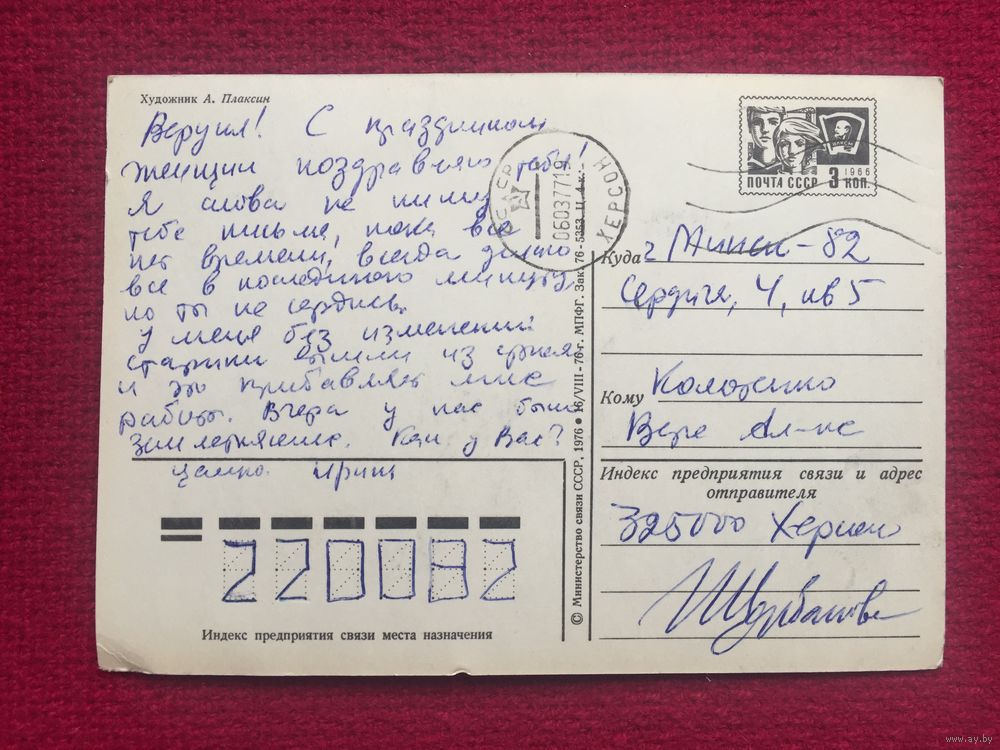 Художник А. Плаксин
Веруня! С праздником
женщин поздравляю тебя!
Я снова не пишу
тебе письма, пока все
нет времени, всегда делаю
все в последнюю минуту,
но ты не сердись.
У меня без изменений
старики вышли из
и это прибавляет мне
работы. Вчера у нас было
землетрясение. Как у Вас?
Целую. Ириш
Индекс предприятия связи места назначения
220082
© Министерство связи СССР, 1976 ● 16/VIII-76 г. МПФГ. Зак. 76-5353. Ц. 4 к.
УССР ХЕРСОН
06037719
ПОЧТА СССР 3 КОП.
1966
ВЛКСМ
Куда г Минск-82
Сердича, 4, кв 5
Кому
Вере Ал-не
Индекс предприятия связи и адрес
отправителя
325000 Херсон
www.ay.by